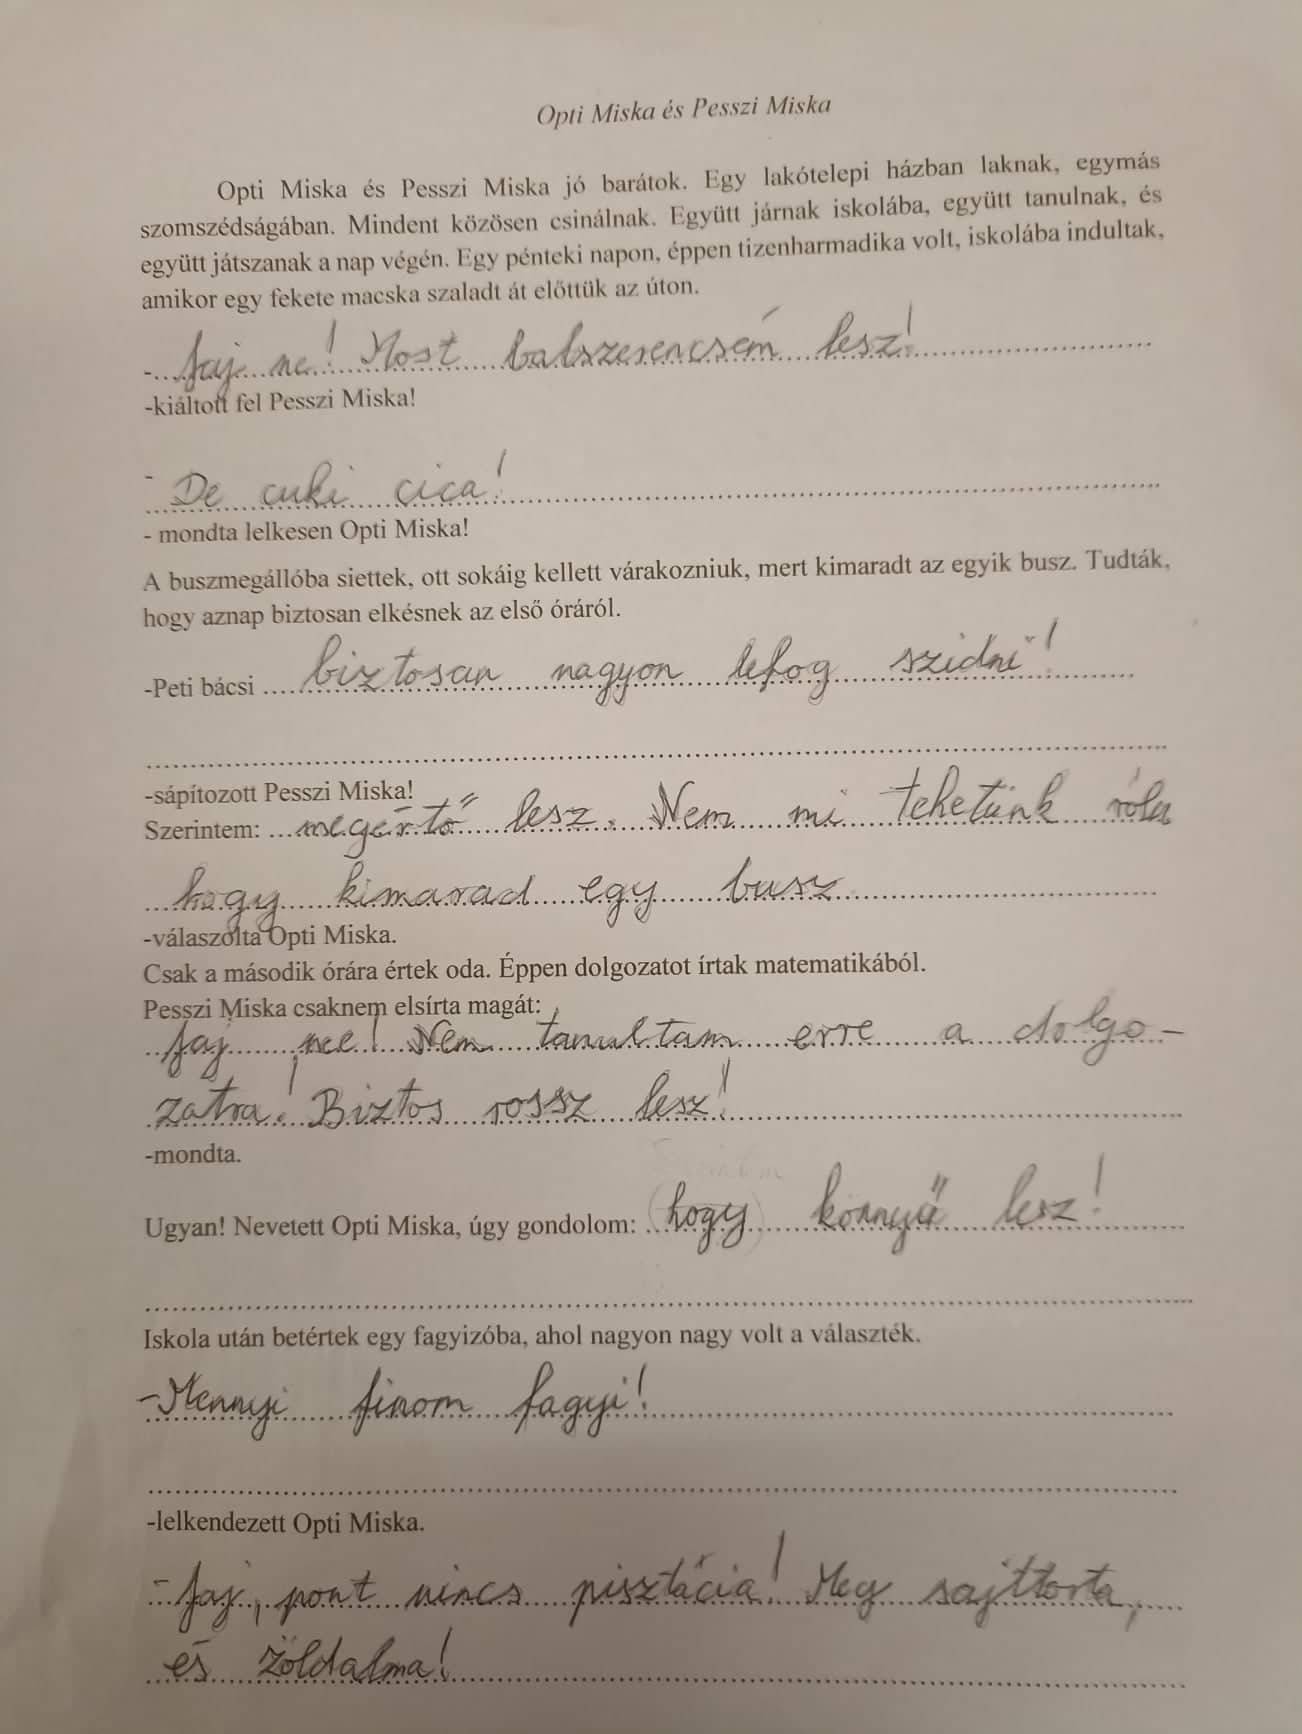 Opti Miska és Pesszi Miska
Opti Miska és Pesszi Miska jó barátok. Egy lakótelepi házban laknak, egymás
szomszédságában. Mindent közösen csinálnak. Együtt járnak iskolába, együtt tanulnak, és
együtt játszanak a nap végén. Egy pénteki napon, éppen tizenharmadika volt, iskolába indultak,
amikor egy fekete macska szaladt át előttük az úton.
- Jaj ne! Most balszerencsém lesz!
-kiáltott fel Pesszi Miska!
- De cuki cica!
- mondta lelkesen Opti Miska!
A buszmegállóba siettek, ott sokáig kellett várakozniuk, mert kimaradt az egyik busz. Tudták,
hogy aznap biztosan elkésnek az első óráról.
-Peti bácsi biztosan nagyon lefog szidni!
-sápítozott Pesszi Miska!
Szerintem: megértő lesz. Nem mi tehetünk róla
hogy kimarad egy busz
-válaszolta Opti Miska.
Csak a második órára értek oda. Éppen dolgozatot írtak matematikából.
Pesszi Miska csaknem elsírta magát:
Jaj, nee! Nem tanultam erre a dolgo-
zatra! Biztos rossz lesz!
-mondta.
Ugyan! Nevetett Opti Miska, úgy gondolom: (hogy) könnyű lesz!
Iskola után betértek egy fagyizóba, ahol nagyon nagy volt a választék.
-Mennyi finom fagyi!
-lelkendezett Opti Miska.
- Jaj, pont nincs pisztácia! Meg sajttorta,
és zöldalma!